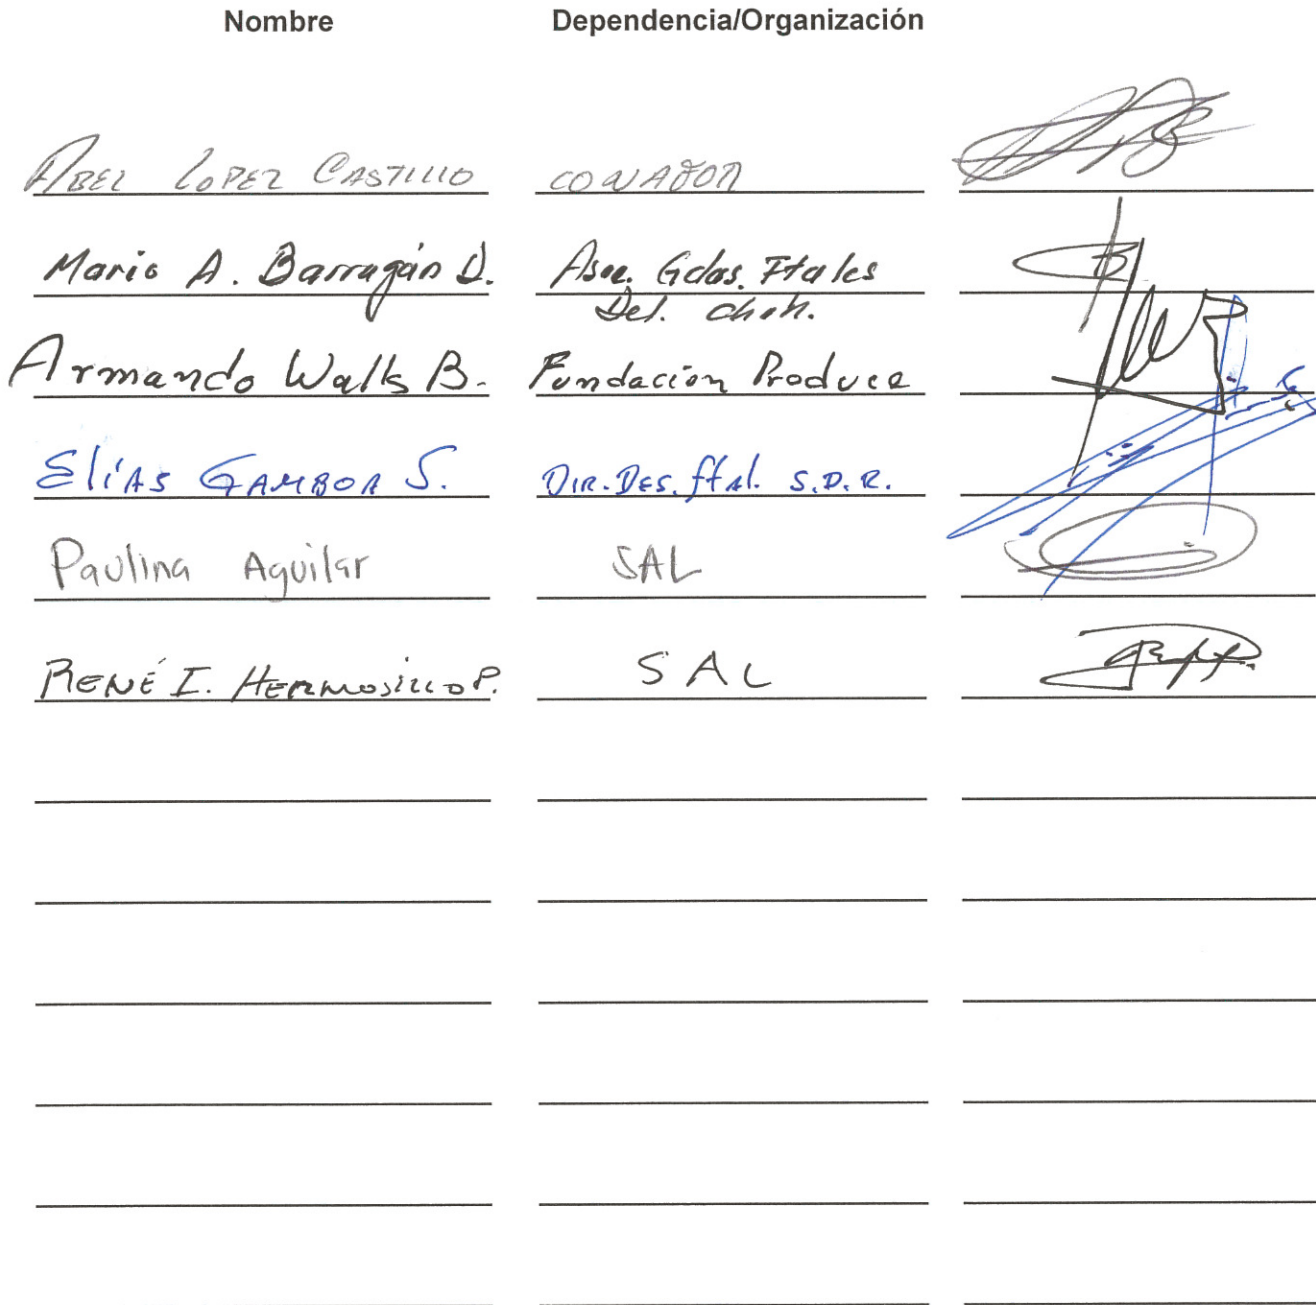 Nombre Dependencia/Organización
ABEL LOPEZ CASTILLO CONAFOR
Mario A. Barragán D. Asoc. Gdas. Ftales
Del. Chih.
Armando Walls B. Fundacion Produce
Elías GAMBOA S. DIR. DES. ftal. S.D.R.
Paulina Aguilar SAL
RENÉ I. HERMOSILLO P. SAL